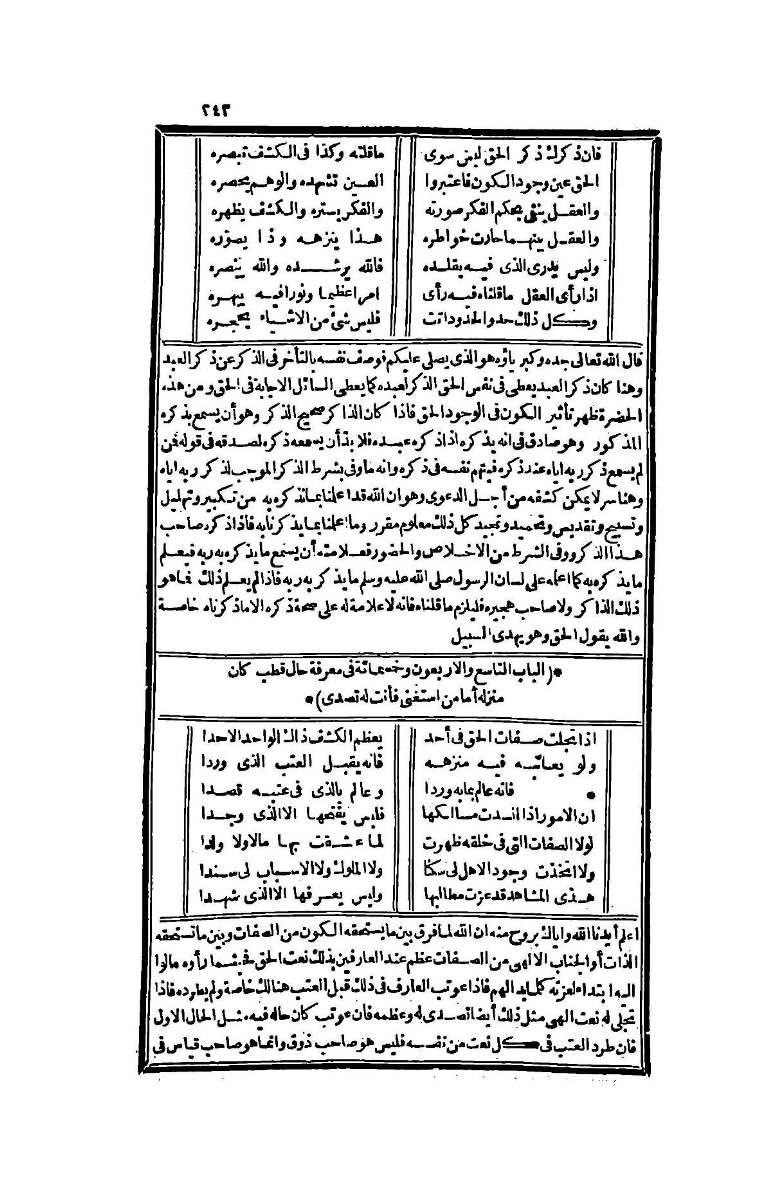 ٢٤٣
فان ذكرك ذكر الحق ليس سوى ما قلته وكذا فى الكشف تبصره
الحق عين وجود الكون فاعتبروا العين تشهده والوهم يحصره
والعقل ينفى بحكم الفكر صورته والفكر يستره والكشف يظهره
والعقل بينهما حارت خواطره هذا ينزهه وذا يصوره
وليس يدرى الذى فيه يقلده فالله يرشده والله ينصره
اذا رأى العقل ما قلناه فيه رأى امرا عظيما ونورا فيه يبهره
وكل ذلك حد والحدود أتت فليس شئ من الاشياء يحجره
قال الله تعالى جده وكبرياؤه هو الذى يصلى عليكم فوصف نفسه بالتأخر فى الذكر عن ذكر العبد
وهنا كان ذكر العبد يعطى فى نفس الحق الذكر لعبده كما يعطى السائل الاجابة فى الحق ومن هذه
الحضرة ظهر تأثير الكون فى الوجود الحق فاذا كان الذاكر صحيح الذكر وهو أن يسمع بذكره
المذكور وهو صادق فى انه يذكره اذا ذكره عبده فلا بد أن يسمعه ذكره لصدقه فى قوله فمن
لم يسمع ذكر ربه اياه عند ذكره فيتهم نفسه فى ذكره وانه ما وفى بشرط الذكر الموجب لذكر ربه اياه
وهنا سر لا يمكن كشفه من أجل الدعوى وهو ان الله قد اعلمنا بما نذكره به من تكبير وتهليل
وتسبيح وتقديس وتحميد وتمجيد كل ذلك معلوم مقرر وما اعلمنا بما يذكرنا به فاذا ذكره صاحب
هذا الذكر ووفى الشرط من الاخلاص والحضور فعلامته أن يسمع ما يذكره به ربه فيعلم
ما يذكره به كما اعلمه على لسان الرسول صلى الله عليه وسلم ما يذكر به ربه فاذا لم يعلم ذلك فما هو
ذلك الذاكر ولا صاحب هجيره فليلزم ما قلناه فانه لا علامة له على صحة ذكره الا ما ذكرناه خاصة
والله يقول الحق وهو يهدى السبيل
*(الباب التاسع والاربعون وخمسمائة فى معرفة حال قطب كان
منزله أما من استغنى فأنت له تصدى)*
اذا تجلت صفات الحق فى أحد يعظم الكشف ذاك الواحد الاحدا
ولو يعاتبه فيه منزهه فانه يقبل العتب الذى وردا
* فانه عالم بما به وردا وعالم بالذى فى عتبه قصدا
ان الامور اذا انسدت مسالكها فليس يفتحها الا الذى وجدا
لولا الصفات التى فى خلقه ظهرت لما عشقت بها مالا ولا ولدا
ولا اتخذت وجود الاهل لى سكنا ولا الملوك ولا الاسباب لى سندا
هذى المشاهد قد عزت مطالبها وليس يعرفها الا الذى شهدا
اعلم أيدنا الله واياك بروح منه ان الله لما فرق بين ما يستحقه الكون من الصفات وبين ما تستحقه
الذات أو الجناب الالهى من الصفات عظم عند العارفين بذلك نعت الحق فحيثما رأوه مالوا
اليه ابتداء لعزته كلما بدا لهم فاذا عوتب العارف فى ذلك قبل العتب هنالك خاصة ولم يطرده فاذا
تجلى له نعت الهى مثل ذلك أيضا تصدى له وعظمه فان عوتب كان حاله فيه مثل الحال الاول
فان طرد العتب فى كل نعت من نفسه فليس هو صاحب ذوق وانما هو صاحب قياس فى